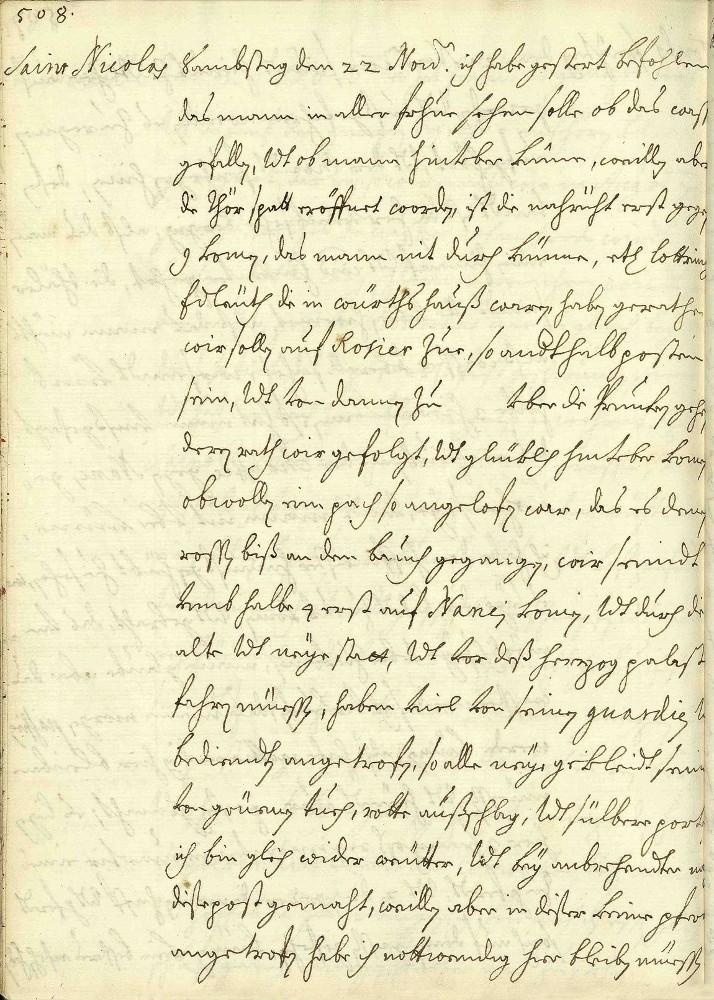 508.
Saint Nicolas Sambstag den 22 Nov: ich habe gestert befohlen
das mann in aller frhüe sehen solle ob das wass
gefallen, Vdt ob mann hinüber künne, weillen aber
die Thör spatt eröffnet worden, ist die nahricht erst gege
9 komen, das mann nit durch künne, etl lottring
Edleüth die in würthshauß waren, haben gerathe
wir sollen auf Rosier zue, so andthalb posten
sein, Vdt von dannen zu über die Prucken gehe
deren rath wir gefolgt, Vdt glücklich hinüber komen
obwollen ein pach so angelofen war, das es denen
rossen biß an den bauch gegangen, wir seindt
vmb halbe 4 erst auf Nancj komen, Vdt durch die
alte Vdt neüe statt, Vdt vor deß herzog palast
fahren müessen, haben viel von seinen guardien
bediendten angetrofen, so alle neüe gekleidt sein
von grüenen tuch, rotte außschlag, Vdt sülbere port
ich bin gleich wider weitter, Vdt bey anbrehendter
disse post gemaht, weillen aber in disser keine pfer
angetrofen habe ich nottwendig hier bleiben müessen